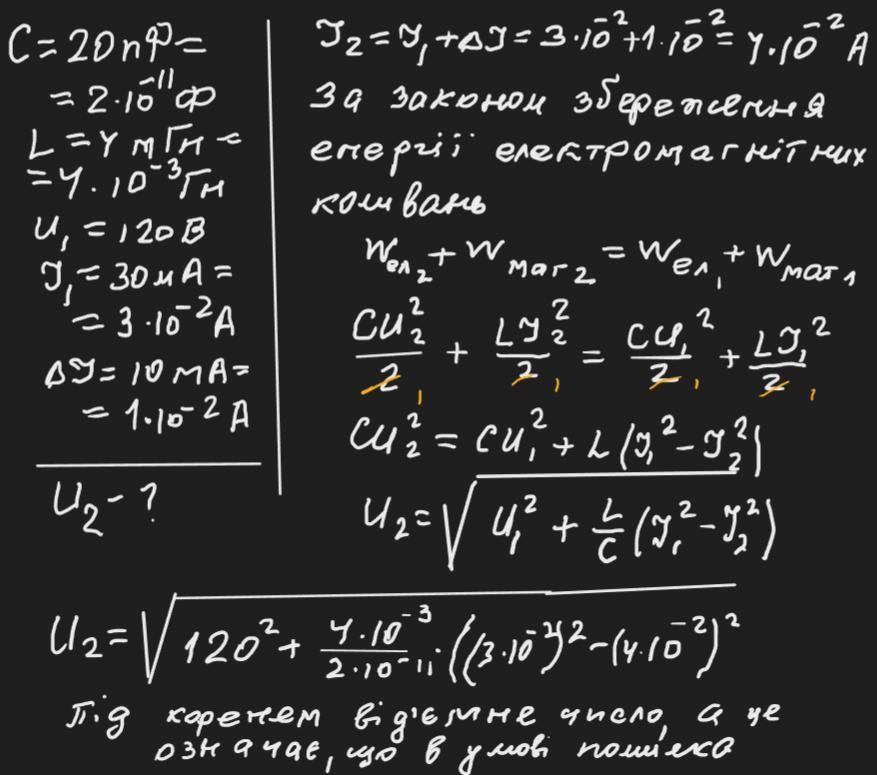 C = 20 пФ =
= 2·10⁻¹¹ Ф
L = 4 мГн =
= 4·10⁻³ Гн
U₁ = 120 В
I₁ = 30 мА =
= 3·10⁻² А
ΔI = 10 мА =
= 1·10⁻² А
U₂ - ?
I₂ = I₁ + ΔI = 3·10⁻² + 1·10⁻² = 4·10⁻² А
За законом збереження
енергії електромагнітних
коливань
Wел₂ + Wмаг₂ = Wел₁ + Wмаг₁
CU₂²/2 + LI₂²/2 = CU₁²/2 + LI₁²/2
1 1 1 1
CU₂² = CU₁² + L(I₁² - I₂²)
U₂ = √(U₁² + L/C (I₁² - I₂²))
U₂ = √(120² + 4·10⁻³/2·10⁻¹¹ ((3·10⁻²)² - (4·10⁻²)²
Під коренем від'ємне число, а це
означає, що в умові помилка